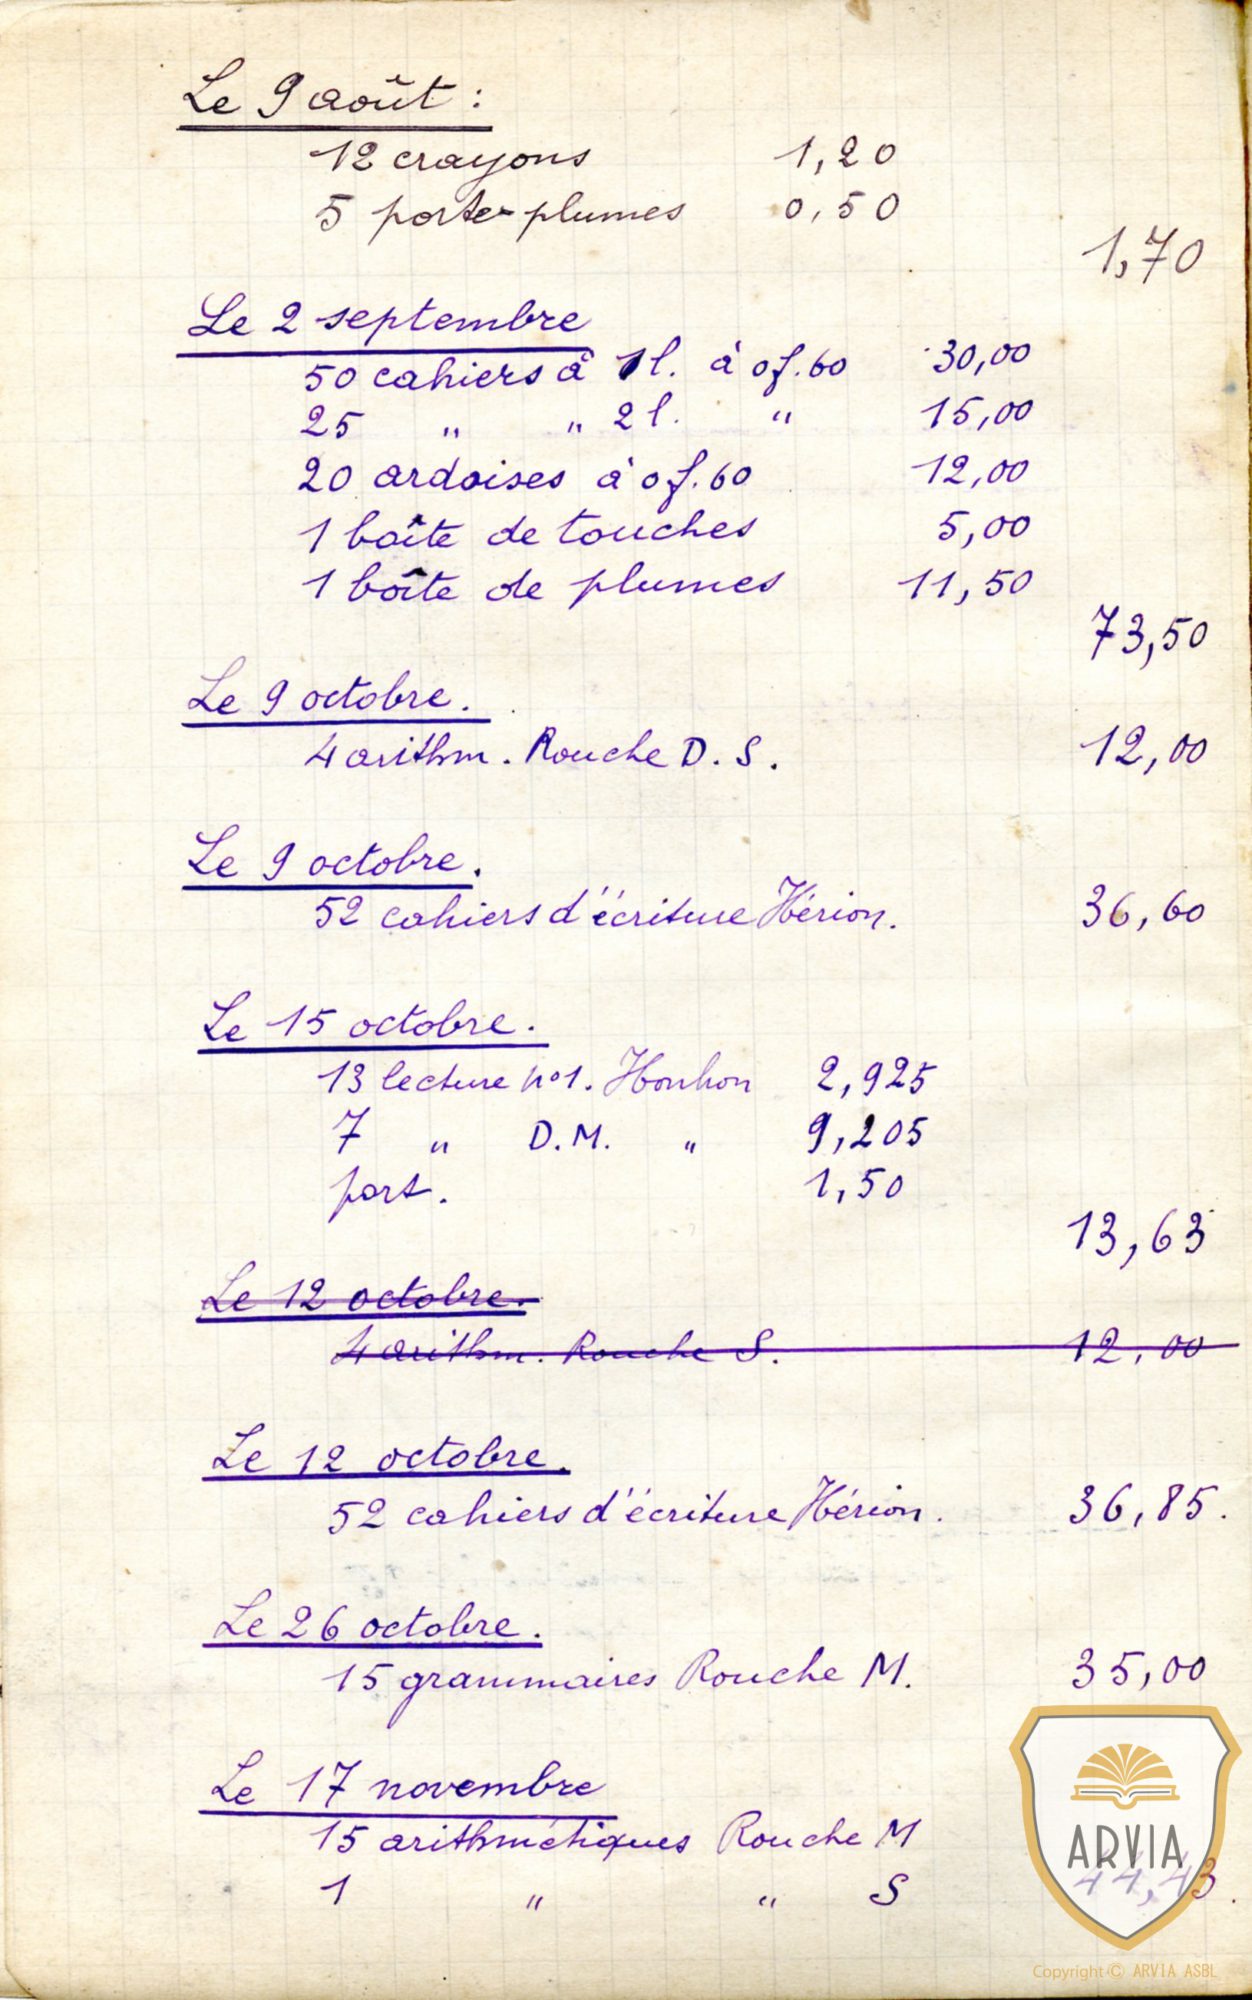 Le 9 août :
12 crayons 1,20
5 porte-plumes 0,50
1,70
Le 2 septembre
50 cahiers à 1 l. à 0f.60 30,00
25 " " 2 l. " 15,00
20 ardoises à 0f.60 12,00
1 boîte de touches 5,00
1 boîte de plumes 11,50
73,50
Le 9 octobre.
4 arithm. Rouche D. S. 12,00
Le 9 octobre.
52 cahiers d'écriture Hérion. 36,60
Le 15 octobre.
13 lecture no1. Honhon 2,925
7 " D.M. " 9,205
port. 1,50
13,63
Le 12 octobre.
4 arithm. Rouche S. 12,00
Le 12 octobre.
52 cahiers d'écriture Hérion. 36,85.
Le 26 octobre.
15 grammaires Rouche M. 35,00
Le 17 novembre
15 arithmétiques Rouche M
1 " " S 44,43.
ARVIA
Copyright © ARVIA ASBL